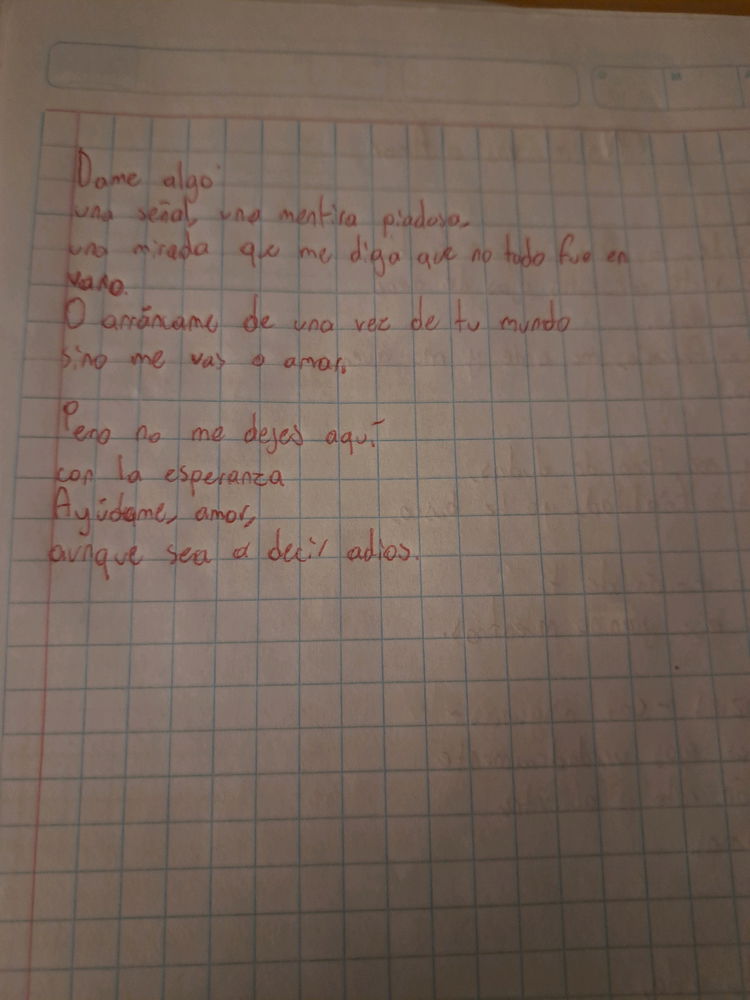 Dame algo
una señal, una mentira piadosa,
una mirada que me diga que no todo fue en
vano.
O arráncame de una vez de tu mundo
sino me vas a amar,
Pero no me dejes aquí
con la esperanza
Ayúdame, amor,
aunque sea a decir adios.